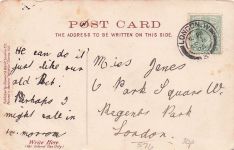 POST CARD
THE ADDRESS TO BE WRITTEN ON THIS SIDE.
LONDON. W.
He can do it
just like our
old
Perhaps I
might call in
to-morrow
Write Here
Miss Jones
6 Park Square W.
Regents Park
London.